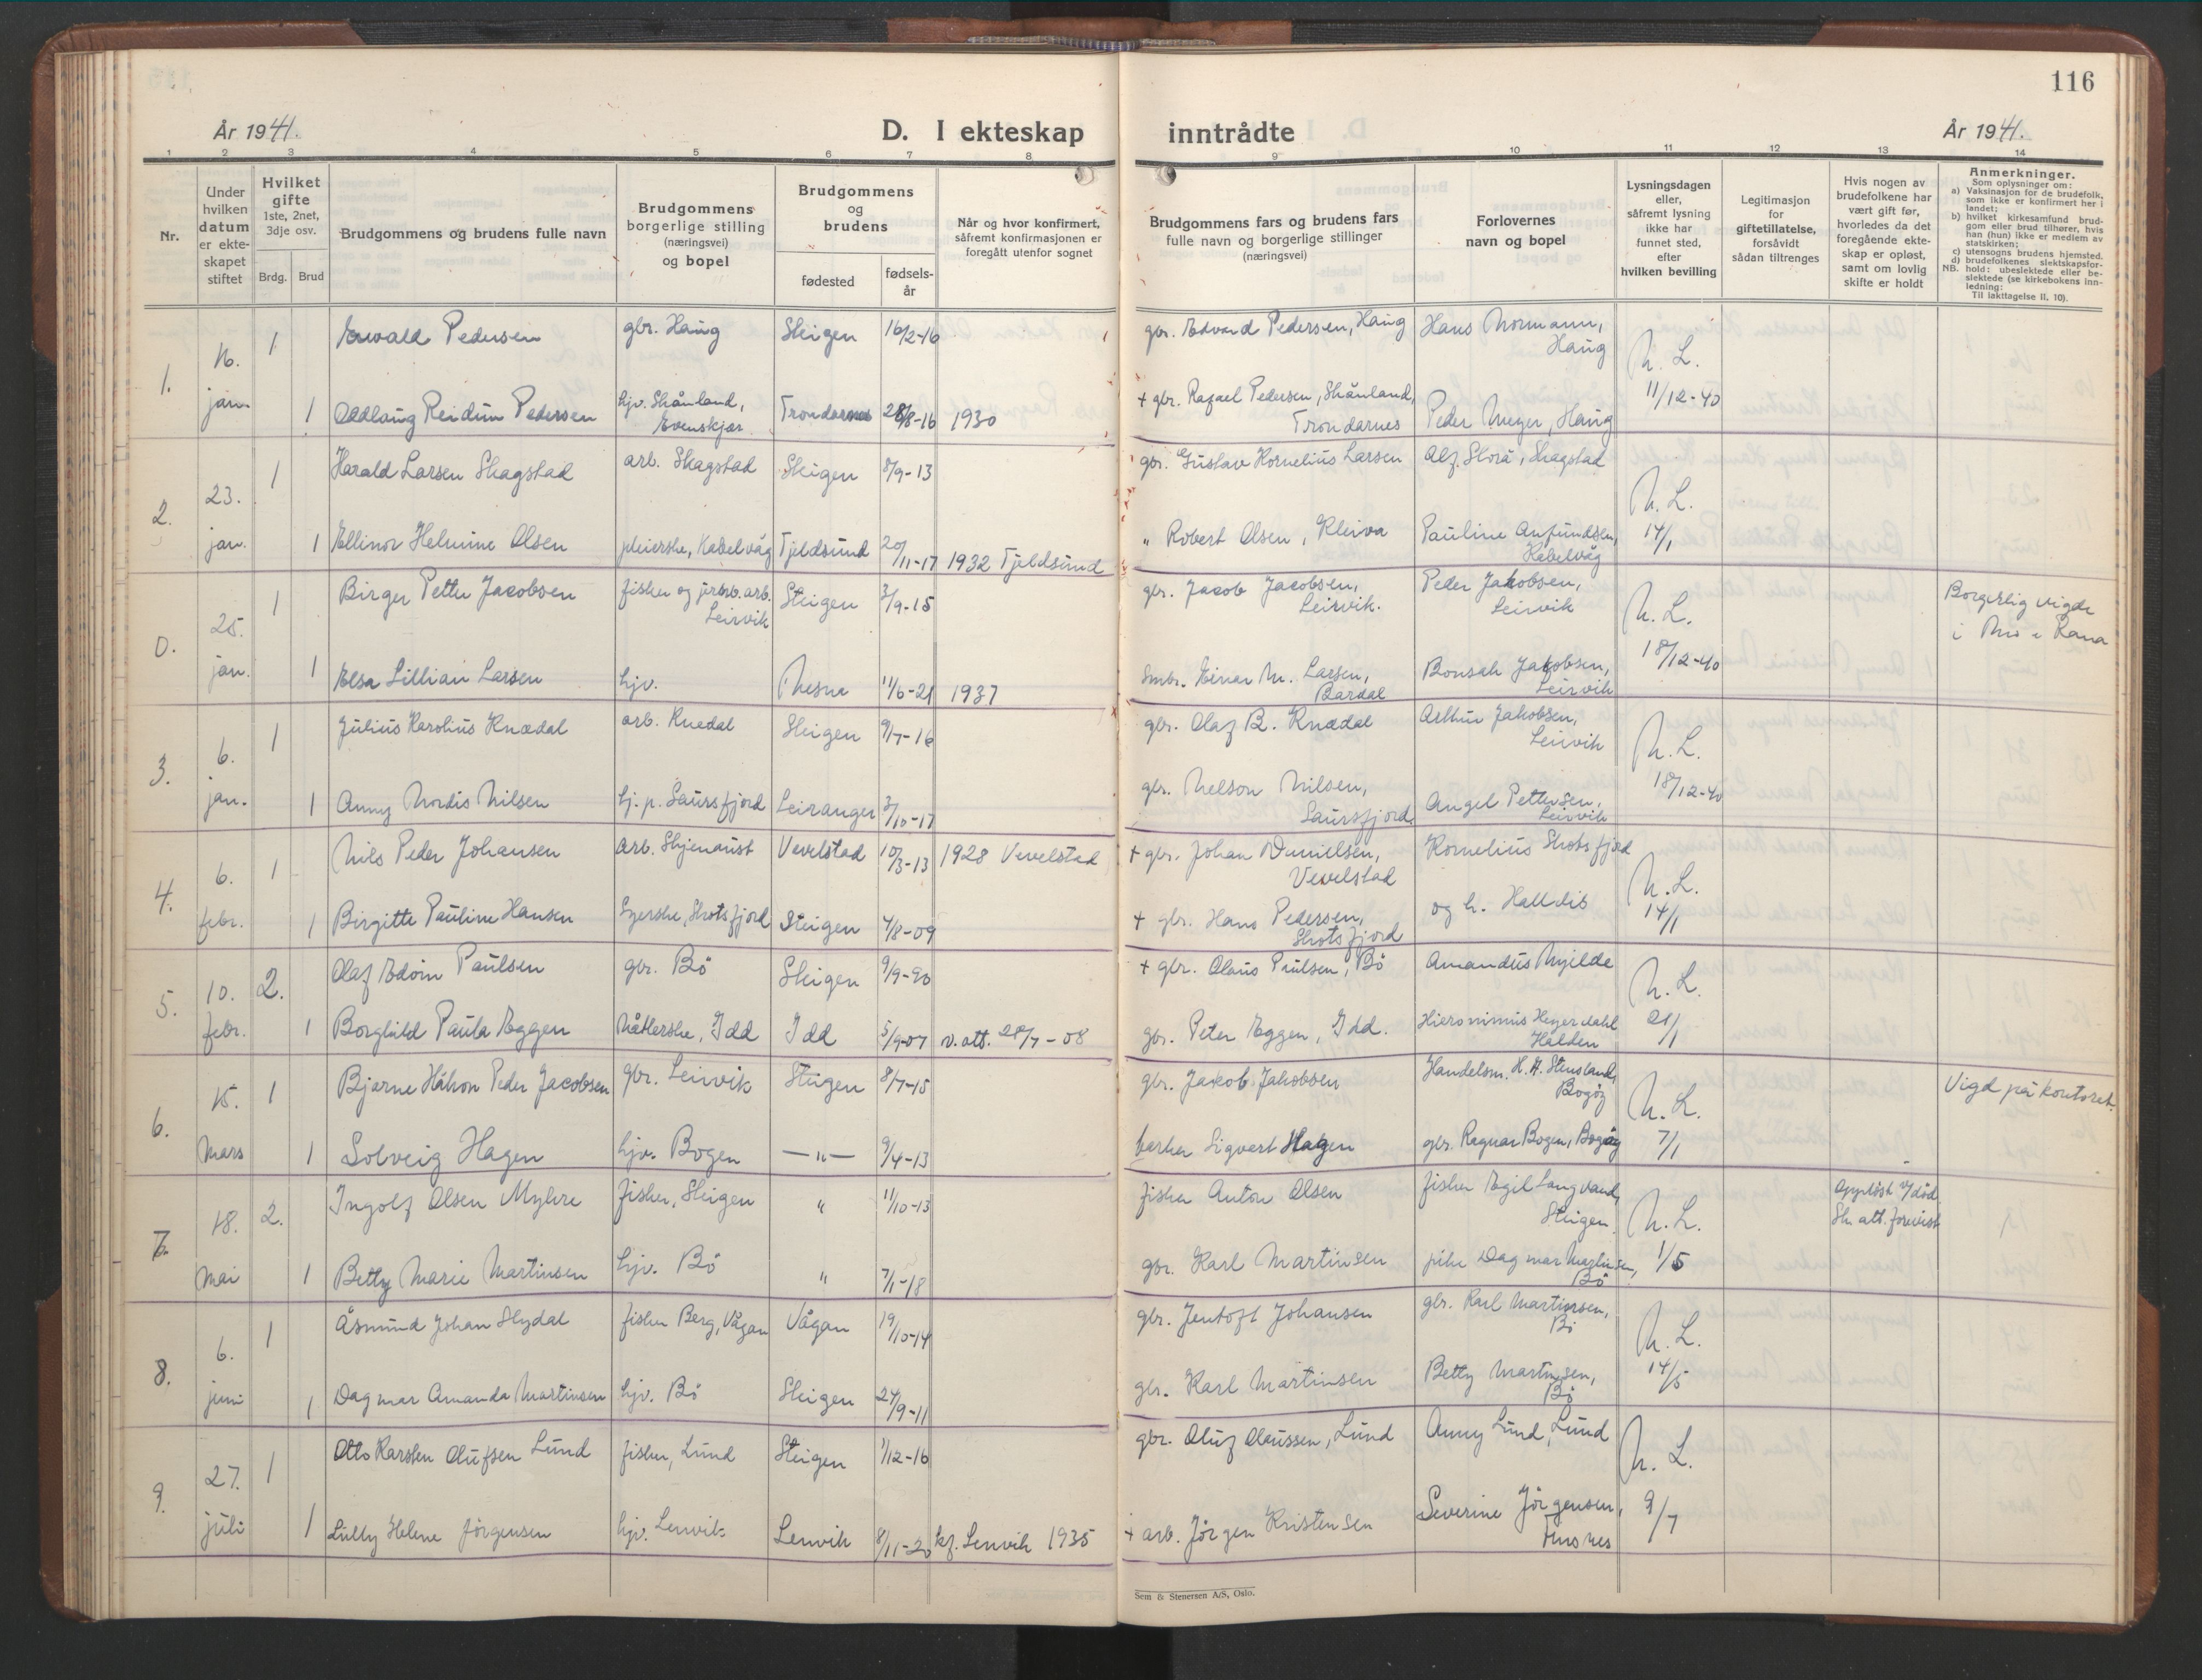 116
År 1941.
D. I ekteskap
inntrådte
År 1941.
1 2 3 4 5 6 7 8 9 10 11 12 13 14
Nr.
Under hvilken datum er ekteskapet stiftet
Hvilket gifte 1ste, 2net, 3dje osv.
Brdg. Brud
Brudgommens og brudens fulle navn
Brudgommens borgerlige stilling (næringsvei) og bopel
Brudgommens og brudens
fødested
fødselsår
Når og hvor konfirmert, såfremt konfirmasjonen er foregått utenfor sognet
Brudgommens fars og brudens fars fulle navn og borgerlige stillinger (næringsvei)
Forlovernes navn og bopel
Lysningsdagen eller, såfremt lysning ikke har funnet sted, efter hvilken bevilling
Legitimasjon for giftetillatelse, forsåvidt sådan tiltrenges
Hvis nogen av brudefolkene har vært gift før, hvorledes da det foregående ekteskap er opløst, samt om lovlig skifte er holdt
Anmerkninger.
Som oplysninger om:
a) Vaksinasjon for de brudefolk, som ikke er konfirmert her i landet;
b) hvilket kirkesamfund brudgom eller brud tilhører, hvis han (hun) ikke er medlem av statskirken;
c) utensogns brudens hjemsted.
d) brudefolkenes slektskapsforhold: ubeslektede eller beslektede (se kirkebokens innledning:
NB. Til iakttagelse II, 10).
1. 16. jan. 1 Edvald Pedersen gbr. Haug Steigen 16/2-16 gbr. Edvard Pedersen, Haug Hans Normann, Haug N. L. 11/12-40
1 Oddlaug Reidun Pedersen hjv. Skånland, Evenskjær Trondarnes 28/8-16 1930 + gbr. Rafael Pedersen, Skånland, Trondarnes Peder Meyer, Haug
2. 23. jan. 1 Harald Larsen Skagstad arb. Skagstad Steigen 8/9-13 gbr. Gustav Kornelius Larsen Alf Storå, Skagstad N. L. 14/1
1 Ellinor Helmine Olsen pleierske, Kabelvåg Tjeldsund 20/11-17 1932 Tjeldsund " Robert Olsen, Kleiva Pauline Anfundsen, Kabelvåg
0. 25. jan. 1 Birger Petter Jacobsen fisker og jernb. arb. Leirvik Steigen 3/9-15 gbr. Jacob Jacobsen, Leirvik. Peder Jakobsen, Leirvik N. L. 18/12-40 Borgerlig vigde i Mo i Rana
1 Elsa Lillian Larsen hjv. Nesna 11/6-21 1937 Smbr. Einar M. Larsen, Bardal Jakobsen, Leirvik
3. 6. jan. 1 Julius Karolius Knædal arb. Knedal Steigen 9/7-16 gbr. Olaf B. Knædal Arthur Jakobsen, Leirvik N. L. 18/12-40
1 Anny Nordis Nilsen hj. p. Saursfjord Leiranger 3/10-17 gbr. Nelson Nilsen, Saursfjord. Angel Pettersen, Leirvik
4. 6. febr. 1 Nils Peder Johansen arb. Stjernarist Vevelstad 10/3-13 1928 Vevelstad + gbr. Johan Danielsen, Vevelstad Kornelius Skotsfjord N. L. 14/1
1 Birgitte Pauline Hansen Syerske, Skotsfjord Steigen 4/8-09 + gbr. Hans Pedersen, Skotsfjord og h. Halldis
5. 10. febr. 2. Olaf Edvin Paulsen gbr. Bö Steigen 9/9-90 + gbr. Olaus Paulsen, Bö Amandus Myilde N. L. 21/1
1 Borghild Paula Eggen Måterske, Idd Idd 5/9-07 v. att. 28/7-08 gbr. Peter Eggen, Idd. Hieronimus Heyerdahl Halden
6. 15. Mars 1 Bjarne Håkon Peder Jacobsen gbr. Leirvik Steigen 8/7-15 gbr. Jakob Jakobsen Handelsm. H. A. Stensland, Bogöy N. L. 7/1 Vigd på kontoret.
1 Solveig Hagen hjv. Bogen — " — 9/4-13 Sigvert Hagen gbr. Ragnar Bogen, Bogöy
7. 18. Mai 2. Ingolf Olsen Myhre fisker, Steigen " 11/10-13 fisker Anton Olsen fisker Egil Langsand, Steigen N. L. 1/5 Oppløst v/ død Sk. att. forevist
1 Betty Marie Martinsen hjv. Bö " 7/1-18 gbr. Karl Martinsen pike Dagmar Martinsen, Bö
8. 6. juni 1 Åsmund Johan Slydal fisker Berg, Vågan Vågan 19/10-14 gbr. Jentoft Johansen gbr. Karl Martinsen, Bö N. L. 14/5
1 Dagmar Amanda Martinsen hjv. Bö Steigen 24/9-11 gbr. Karl Martinsen Betty Martinsen, Bö
9. 27. juli 1 Otto Karsten Olufsen Lund fisker, Lund Steigen 1/12-16 gbr. Oluf Olaussen, Lund Anny Lund, Lund N. L. 9/7
1 Lully Helene Jörgensen hjv. Lenvik Lenvik 8/11-20 kf. Lenvik 1935 + arb. Jörgen Kristensen Severine Jörgensen, Husnes
Sem & Stenersen A/S, Oslo.